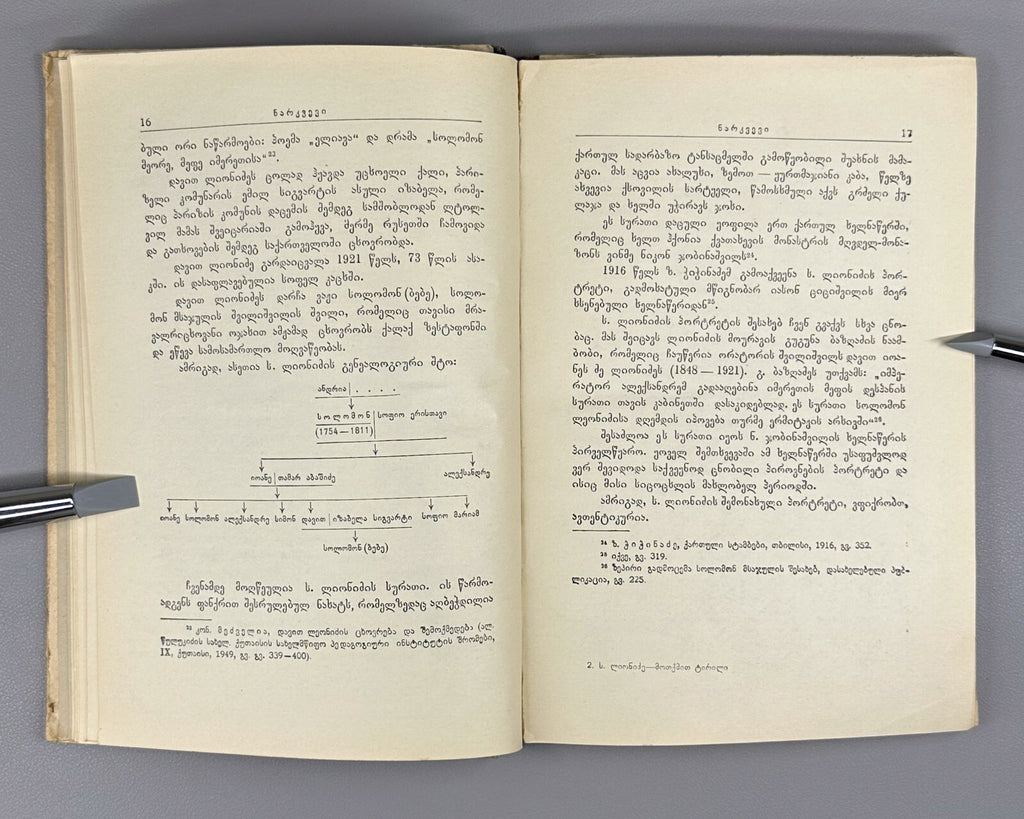 16
ნარკვევი
ბული ორი ნაწარმოები: პოემა „ელიავა“ და დრამა „სოლომონ
მეორე, მეფე იმერეთისა“²³.
დავით ლიონიძეს ცოლად ჰყავდა უცხოელი ქალი, პარი-
ზელი კომუნარის ემილ სიგვარტის ასული იზაბელა, რომე-
ლიც პარიზის კომუნის დაცემის შემდეგ სამშობლოდან ლტოლ-
ვილ მამას შვეიცარიაში გამოჰყვა, მერმე რუსეთში ჩამოვიდა
და გათხოვების შემდეგ საქართველოში ცხოვრობდა.
დავით ლიონიძე გარდაიცვალა 1921 წელს, 73 წლის ასა-
კში. ის დასაფლავებულია სოფელ კაცხში.
დავით ლიონიძეს დარჩა ვაჟი სოლომონ (ბებე), სოლო-
მონ მსაჯულის შვილიშვილის შვილი, რომელიც თავისი მრა-
ვალრიცხოვანი ოჯახით ამჟამად ცხოვრობს ქალაქ ზესტაფონში
და ეწევა სამოსამართლო მოღვაწეობას.
ამრიგად, ასეთია ს. ლიონიძის გენეალოგიური შტო:
ანდრია . . . .
სოლომონ სოფიო ერისთავი
(1754—1811)
იოანე თამარ აბაშიძე ალექსანდრე
იოანე სოლომონ ალექსანდრე სიმონ დავით იზაბელა სიგვარტი სოფიო მარიამ
სოლომონ (ბებე)
ჩვენამდე მოღწეულია ს. ლიონიძის სურათი. ის წარმო-
ადგენს ფანქრით შესრულებულ ნახატს, რომელზედაც აღბეჭდილია
²³ კონ. მეძველია, დავით ლეონიძის ცხოვრება და შემოქმედება (ალ.
წულუკიძის სახელ. ქუთაისის სახელმწიფო პედაგოგიური ინსტიტუტის შრომები,
IX, ქუთაისი, 1949, გვ. გვ. 339—400).
ნარკვევი
17
ქართულ სადარბაზო ტანსაცმელში გამოწყობილი შუახნის მამა-
კაცი. მას აცვია ახალუხი, ზემოთ — ყურთმაჯიანი კაბა, წელზე
ახვევია ქსოვილის სარტყელი, წამოსხმული აქვს გრძელი ქუ-
ლაჯა და ხელში უჭირავს ჯოხი.
ეს სურათი დაცული ყოფილა ერთ ქართულ ხელნაწერში,
რომელიც ხელთ ჰქონია ქვათახევის მონასტრის მღვდელ-მონა-
ზონს ვინმე ნიკონ ჯობინაშვილს²⁴.
1916 წელს ზ. ჭიჭინაძემ გამოაქვეყნა ს. ლიონიძის პორ-
ტრეტი, გადმოხატული მწიგნობარ იასონ ციციშვილის მიერ
ხსენებული ხელნაწერიდან²⁵.
ს. ლიონიძის პორტრეტის შესახებ ჩვენ გვაქვს სხვა ცნო-
ბაც. მას შეიცავს ლიონიძის მოურავის გუგუნა ბაზღაძის ნაამ-
ბობი, რომელიც ჩაუწერია ორატორის შვილიშვილს დავით იოა-
ნეს ძე ლიონიძეს (1848 — 1921). გ. ბაზღაძეს უთქვამს: „იმპე-
რატორ ალექსანდრემ გადააღებინა იმერეთის მეფის დესპანის
სურათი თავის კაბინეთში დასაკიდებლად. ეს სურათი სოლომონ
ლეონიძისა დღემდის იპოვება თურმე ერმიტაჟის არსივში“²⁶.
შესაძლოა ეს სურათი იყოს ნ. ჯობინაშვილის ხელნაწერის
პირველწყარო. ყოველ შემთხვევაში ამ ხელნაწერში უსაფუძვლოდ
ვერ შევიდოდა საქვეყნოდ ცნობილი პიროვნების პორტრეტი და
ისიც მისი სიცოცხლის მახლობელ პერიოდში.
ამრიგად, ს. ლიონიძის შემონახული პორტრეტი, ვფიქრობთ,
ავთენტიკურია.
²⁴ ზ. ჭიჭინაძე, ქართული სტამბები, თბილისი, 1916, გვ. 352.
²⁵ იქვე, გვ. 319.
²⁶ ზეპირი გადმოცემა სოლომონ მსაჯულის შესახებ, დასახელებული პუბ-
ლიკაცია, გვ. 225.
2. ს. ლიონიძე—მოთქმით ტირილი